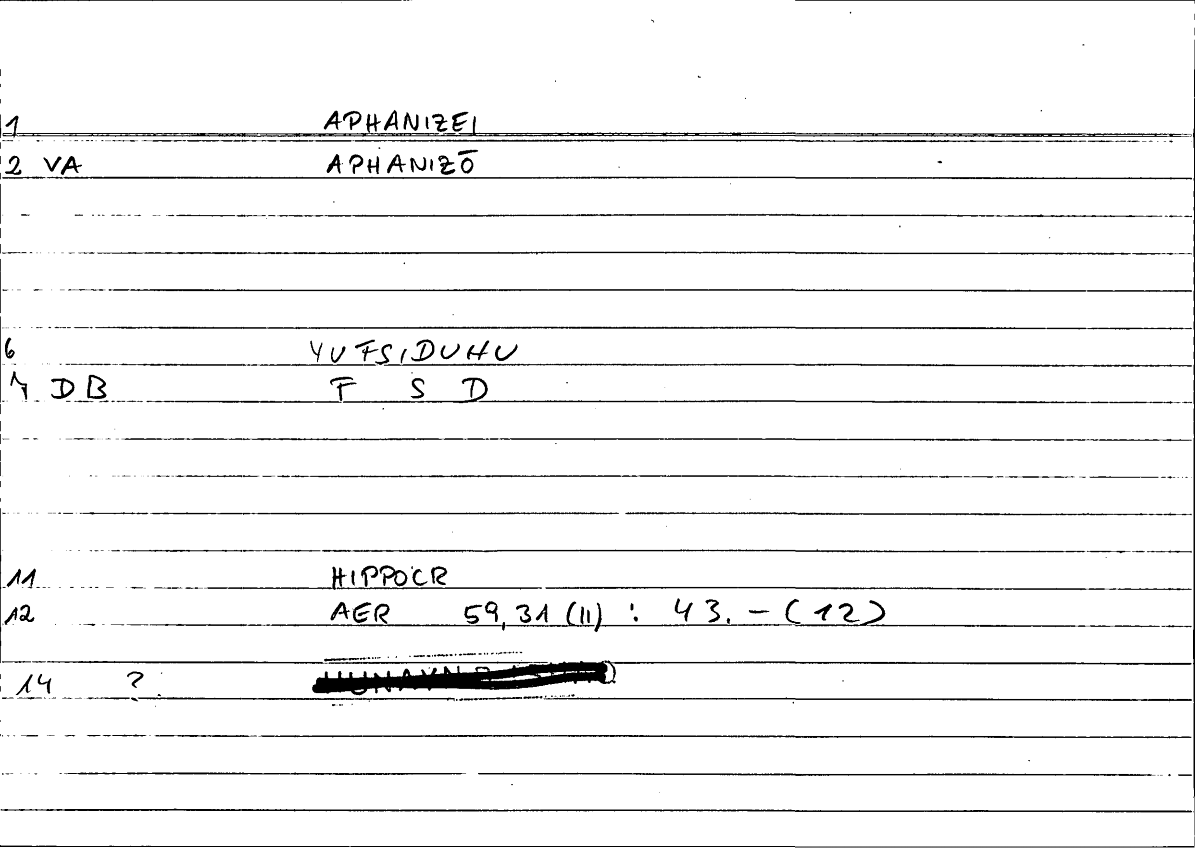 1 APHANIZEI
2 VA APHANIZŌ
6 YUFSIDUHU
7 DB F S D
11 HIPPOCR
12 AER 59,31 (II) : 43. - (12)
14 ?